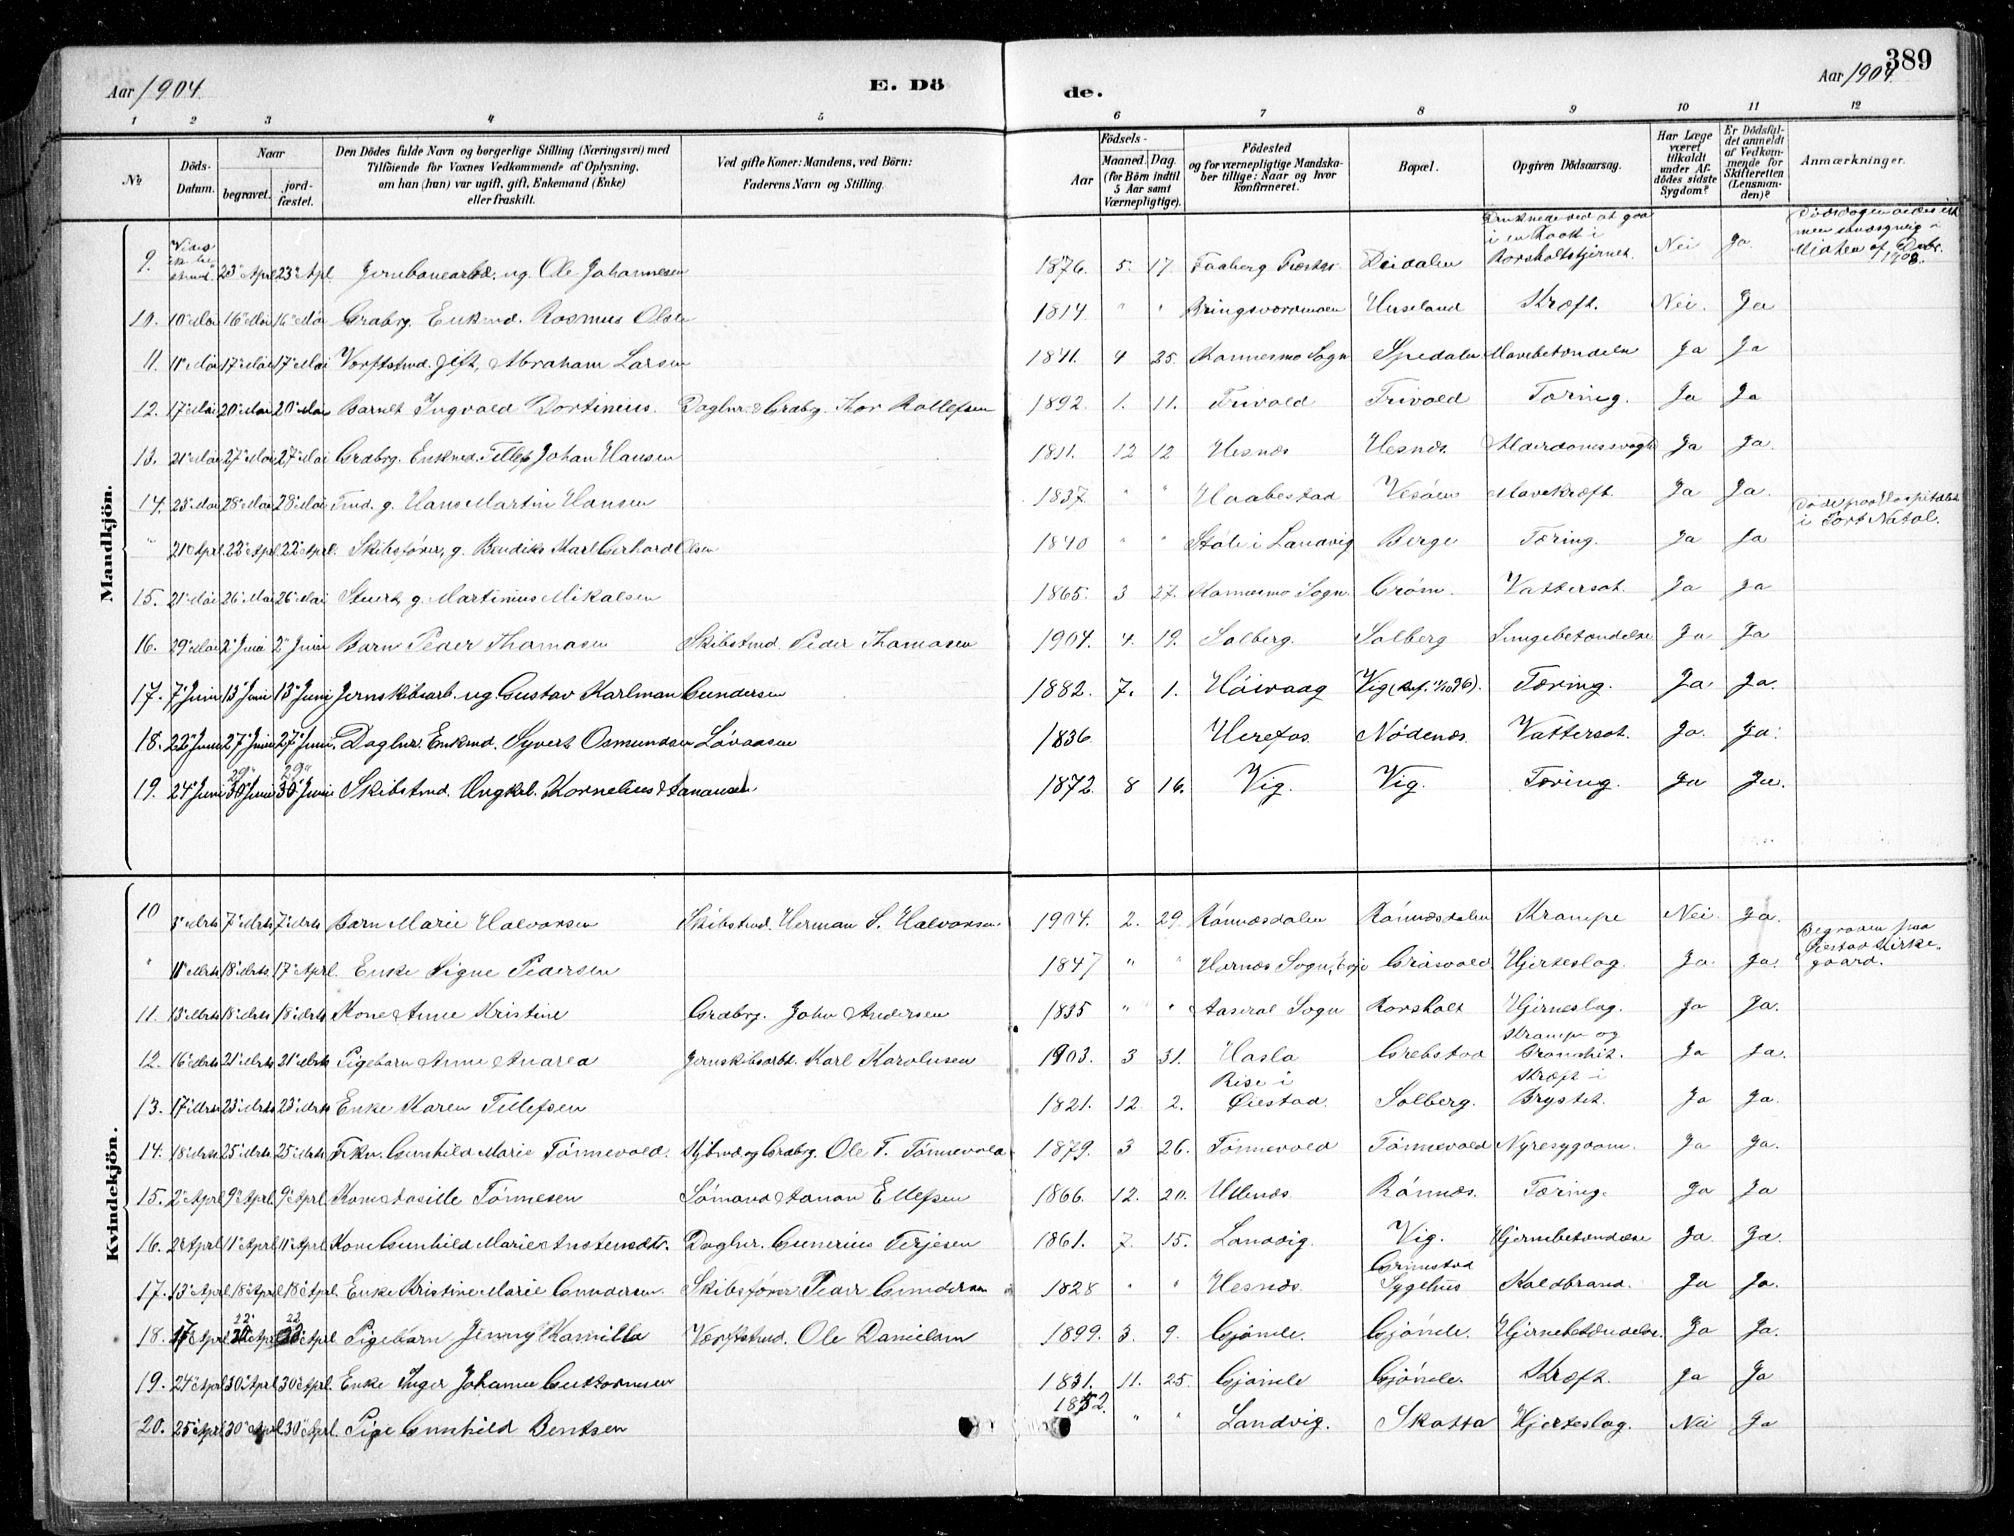 389
Aar 1904. E. Dö de. Aar 1904.
1 2 3 4 5 6 7 8 9 10 11 12
№ Döds-Datum. Naar begravet. jord-fæstet. Den Dödes fulde Navn og borgerlige Stilling (Næringsvei) med Tilföiende for Voxnes Vedkommende af Oplysning, om han (hun) var ugift, gift, Enkemand (Enke) eller fraskilt. Ved gifte Koner: Mandens, ved Börn: Faderens Navn og Stilling. Födsels- Aar Maaned. Dag. (for Börn indtil 5 Aar samt Værnepligtige). Födested og for værnepligtige Mandska-ber tillige: Naar og hvor konfirmeret. Bopæl. Opgiven Dödsaarsag. Har Læge været tilkaldt under Af-dödes sidste Sygdom? Er Dödsfal-det anmeldt af Vedkom-mende for Skifteretten (Lensman-den)? Anmærkninger.
Mandkjön.
9. 23 Apl 23 Apl Jernbanearbd. ug. Ole Johannesen 1876. 5. 17. Faaberg Præstgj. Druknede ved at gaa i en Raak i Nei Ja
10. 10 Mai 16 Mai 16 Mai Grabrg. Enkmd. Rasmus Olsen 1814 " " Bringsværmoen Useland Kræft. Nei. Ja
11. 11 Mai 17 Mai 17 Mai Værftstmd. gift, Abraham Larsen 1841. 4 25. Hommesmo Sogn Spedalen Mavebetændelse Ja Ja
12. 17 Mai 20 Mai 20 Mai Barnet Ingvald Dortinius. Daglnr. & Grabrg. Thor Rollefsen 1892. 1. 11. Trivold Trivold Tæring. Ja Ja
13. 21 Mai 27 Mai 27 Mai Grabrg. Enkmd. Tellef Johan Hansen 1811. 12 12 Hesnes Hesnes. Alderdomssvaghd Ja Ja.
14. 23 Mai 28 Mai 28 Mai Tmd. g. Hans Martin Hansen 1837. " " Haabestad Vesöen Mavekræft. Ja Ja.
" 21 Apl 22 Apl 22 Apl. Skibsförer, g. Bendiks Karl Gerhard Olsen 1840 " " Stöle i Landvig Berge Tæring. Ja Ja Döde paa Hospitalet i Port Natal.
15. 21 Mai 26 Mai 26 Mai Stuert, g. Martinius Mikalsen 1865. 3 27. Hommesmo Sogn. Gröm. Vattersot. Ja Ja
16. 29 Mai 2 Juni 2 Juni Barn Peder Thomasen Skibstmd. Peder Thomasen 1904. 4. 19. Solberg. Solberg Lungebetændelse Ja Ja
17. 7 Juni 13 Juni 13 Juni Jernskibsarb. ug Gustav Karlman Gundersen 1882. 7. 1. Höivaag Vig Tæring. Ja. Ja.
18. 22 Juni 27 Juni 27 Juni. Daglnr. Enkmd. Syvert Osmundsen Lövaasen 1836 Herefos Nödenes. Vattersot. Ja. Ja.
19. 24 Juni 29 30 Juni 29 30 Juni Skibstmd. Ungkl. Kornelius Aanonsen 1872. 8 16. Vig. Vig. Tæring. Ja Ja.
Kvindekjön.
10 3 Mrts 7 Mrts 7 Mrts Barn Marie Halvorsen Skibstmd. Herman S. Halvorsen 1904. 2. 29. Rönnesdalen Rönnesdalen Krampe Nei. Ja.
" 11 Mrts 18 Mrts 17 Apl. Enke Signe Pedersen 1847 " " Hornes Sogn, Evje Gröswold. Hjerteslag. Ja. Ja. Begraven paa Öiestad Kirke-gaard.
11. 13 Mrts 18 Mrts 18 Mrts Kone Anne Kristine Grabrg. John Andersen 1835 " " Aaseral Sogn Rorsholt Hjerneslag. Ja Ja.
12. 16 Mrts 21 Mrts 21 Mrts Pigebarn Anne Andrea Jernskibsarbd. Karl Karolusen 1903. 3 31. Hasla Grebstad Krampe og Bronchit. Ja Ja.
13. 17 Mrts 23 Mrts 23 Mrts Enke Karen Tellefsen 1821. 12. 2. Rise i Öiestad. Solberg. Kræft i Brystet. Ja Ja.
14. 18 Mrts 25 Mrts 25 Mrts Frkn. Gunhild Marie Tönnevold. Skibmd og Grabrg. Ole T. Tönnevold 1879. 3 26. Tönnevold Tönnevold Nyresygdom. Ja Ja.
15. 2 Apl 9 Apl 9 Apl. Kone Aasille Tönnesen Sömand Aanon Ellefsen 1866. 12. 20. Ulenes Rönnes. Tæring. Ja Ja
16. 2 Apl 11 Apl 11 Apl. Kone Gunhild Marie Austensdtr. Daglnr. Gunerius Terjesen 1861. 7. 15. Landvig. Vig. Hjernebetændelse Ja. Ja.
17. 13 Apl 18 Apl 18 Apl. Enke Kristine Marie Gundersen. Skibsförer Peder Gundersen 1828 " " Hesnes. Grimstad Sygehus Koldbrand. Ja Ja.
18. 17 Apl 22 Apl 22 Apl Pigebarn Jenny Kamilla Værftstmd. Ole Danielsen 1899. 3. 9. Gjömle. Gjömle. Hjernebetændelse. Ja Ja.
19. 24 Apl 30 Apl 30 Apl. Enke Inger Johanne Guttormsen 1831. 11. 25. Gjömle Gjömle. Kræft. Ja Ja
20. 25 Apl 30 Apl 30 Apl. Pige Gunhild Bentsen 1852. " " Landvig. Skatta Hjerteslag. Nei Ja